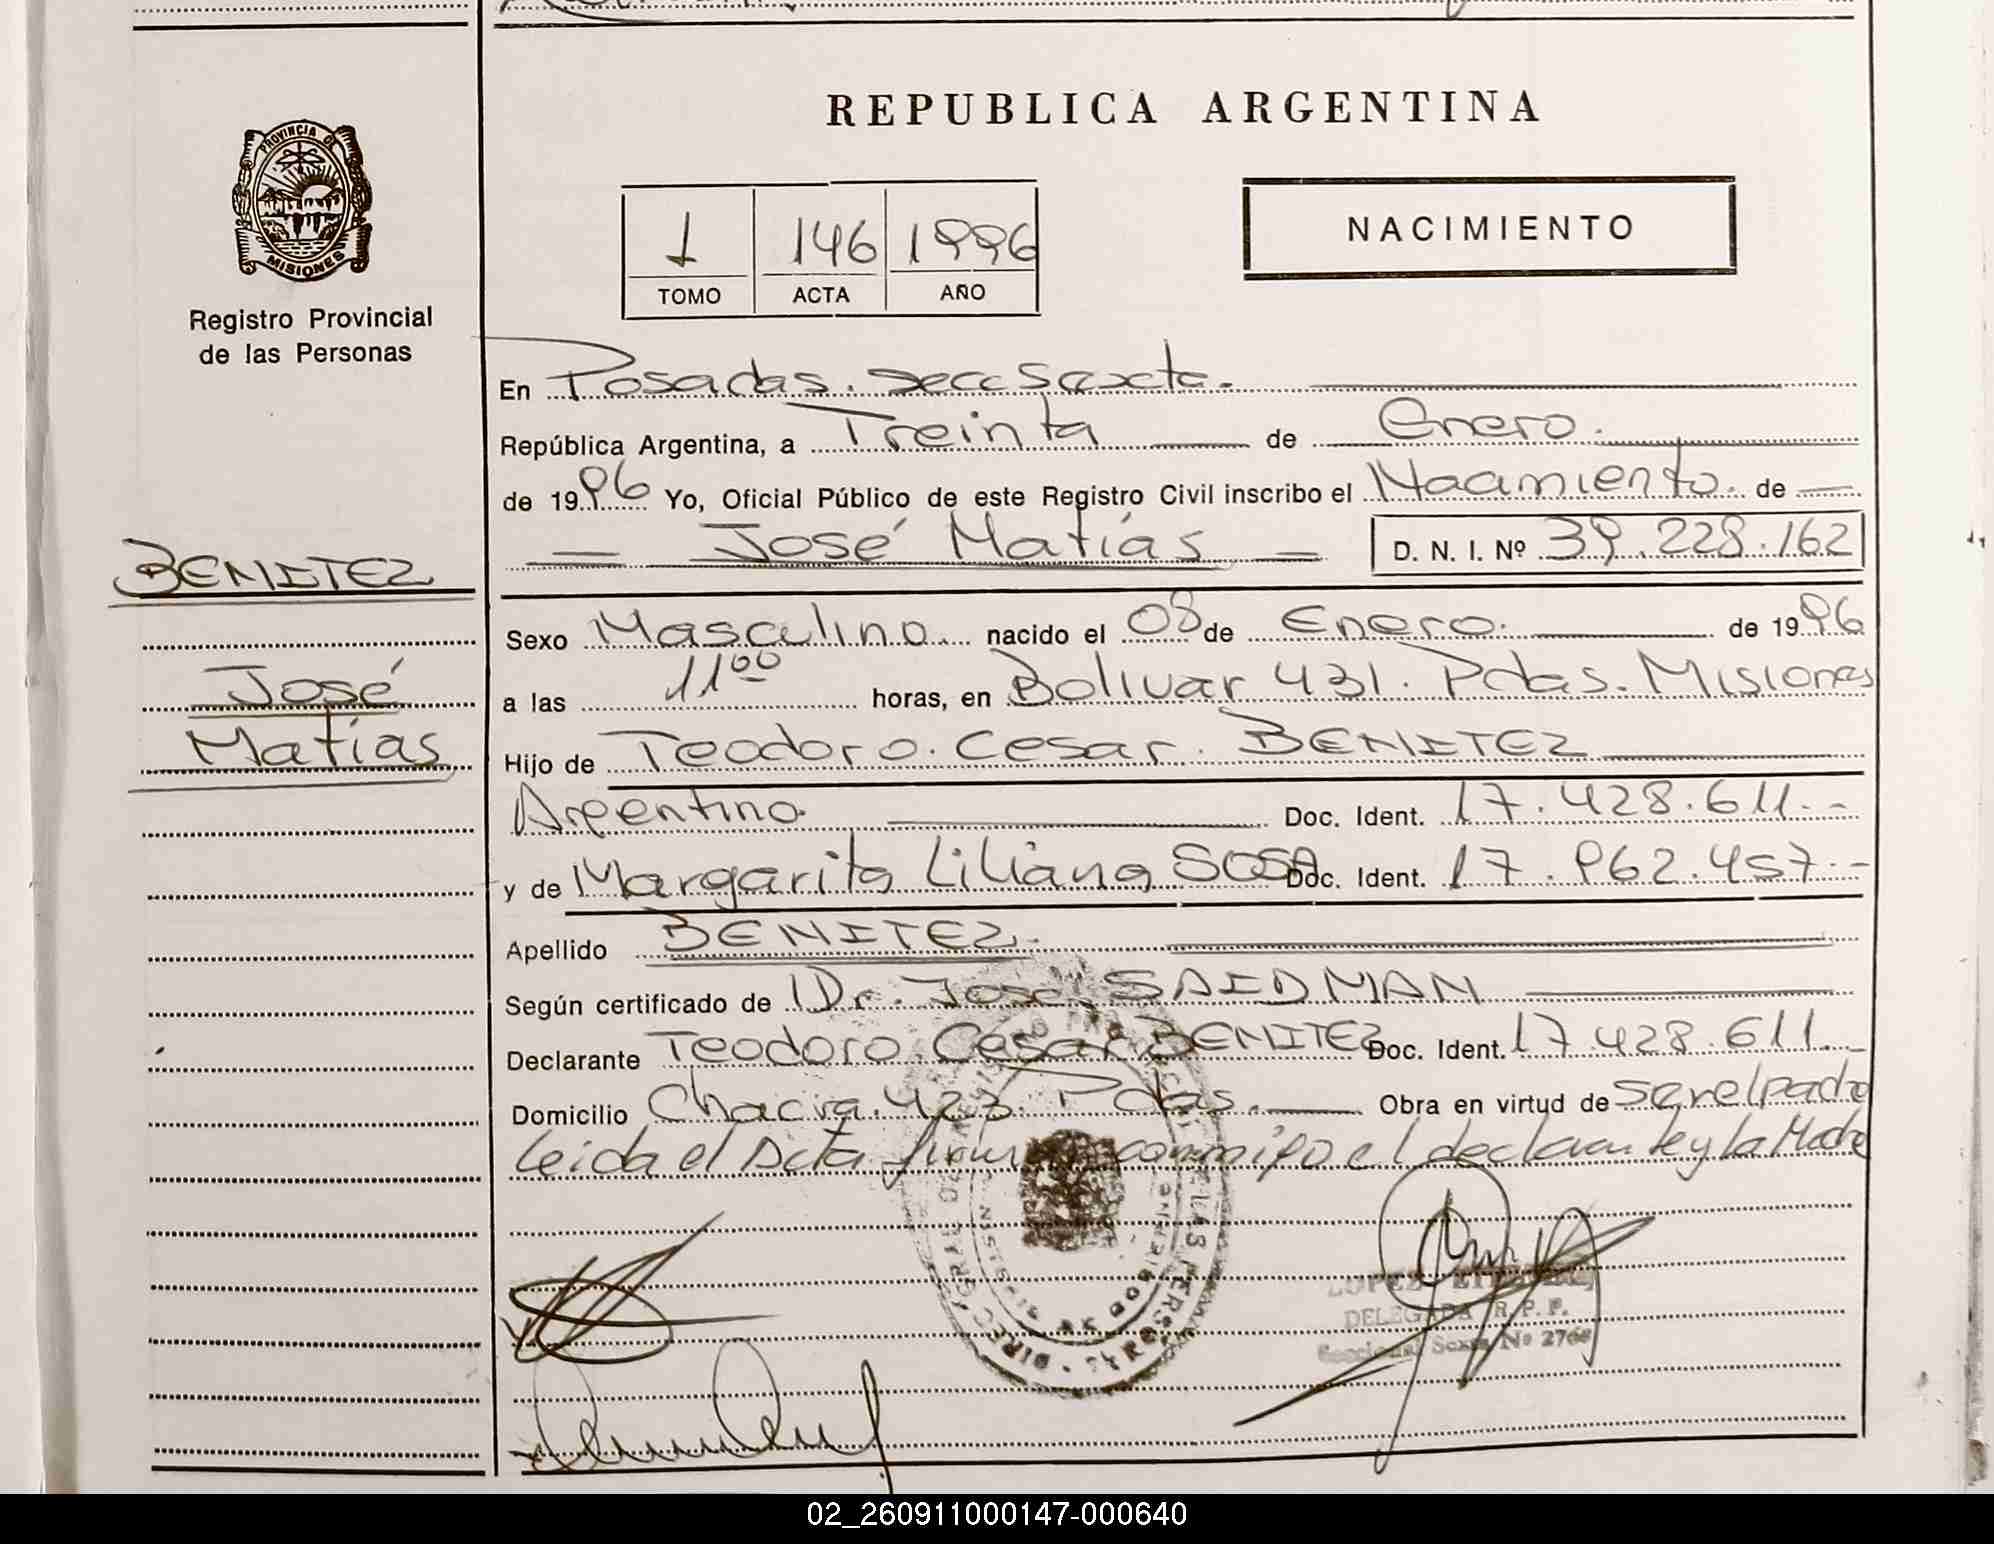 REPUBLICA ARGENTINA
PROVINCIA DE
MISIONES
Registro Provincial
de las Personas
1 146 1996
TOMO ACTA AÑO
NACIMIENTO
En Posadas. Secc Sexta.
República Argentina, a Treinta de Enero.
de 1996 Yo, Oficial Público de este Registro Civil inscribo el Nacimiento. de
José Matías D. N. I. Nº 39.228.162
BENITEZ
José
Matías
Sexo Masculino nacido el 08 de Enero. de 1996
a las 11⁰⁰ horas, en Bolivar 431. Pdas. Misiones
Hijo de Teodoro. Cesar. BENITEZ
Argentino. Doc. Ident. 17.428.611.-
y de Margarita Liliana SOSA Doc. Ident. 17.962.457.-
Apellido BENITEZ.
Según certificado de Dr. José SAIDMAN
Declarante Teodoro. César BENITEZ Doc. Ident. 17.428.611.-
Domicilio Chacra. 423. Pdas. Obra en virtud de ser el padre
Leida el Acta firman conmigo el declarante y la Madre
LOPEZ
DELEGADA R. P. P.
Seccional Sexta Nº 2768
02_260911000147-000640